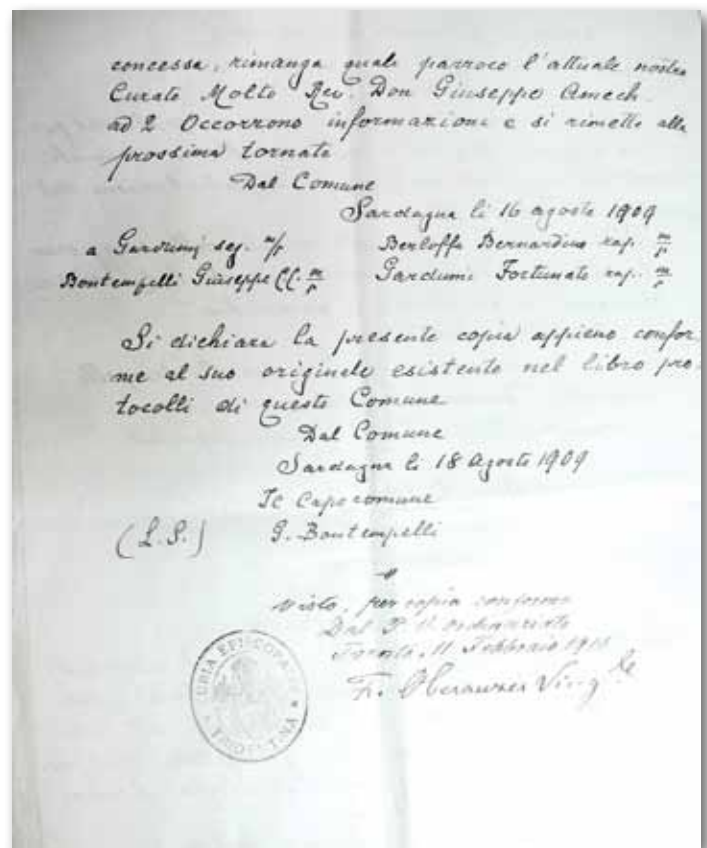 concessa, rimanga quale parroco l'attuale nostro
Curato Molto Rev. Don Giuseppe Amech
ad 2 Occorrono informazioni e si rimette alla
prossima tornata
Dal Comune
Sardagna li 16 agosto 1909
a Gardumi seg. m/p Berloffa Bernardino rap. m/p
Bontempelli Giuseppe CC. m/p Gardumi Fortunato rap. m/p
Si dichiara la presente copia appieno confor
me al suo originale esistente nel libro pro
tocolli di questo Comune
Dal Comune
Sardagna li 18 Agosto 1909
Il Capocomune
(L. S.) G. Bontempelli
Visto, per copia conforme
Dal P. V. Ordinariato
Trento, 11 Febbraio
F. Oberauzer Vic. gle
CURIA EPISCOPALIS
TRIDENTINA